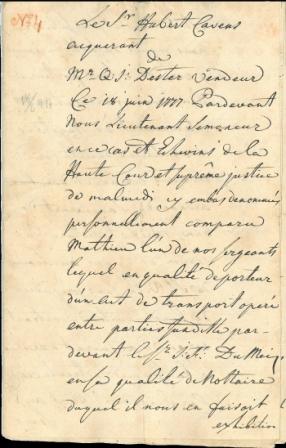 No 4
Le Sr. Hubert Cavens
acquerant
de
Mr. Q. J. Dester Vendeur
Ce 18 juin 1777 Pardevant
Nous Lieutenant Semeneur
en ce cas et Echevins de la
Haute Cour et suprême justice
de malmedi cy embas denommés
personnellement comparu
Mathieu l'un de nos sergeants
lequel en qualité de porteur
d'un act de transport operé
entre parties susditte par-
devant le Sr. J. F.
en sa qualité de Nottaire
duquel il nous en faisoit
exhibition